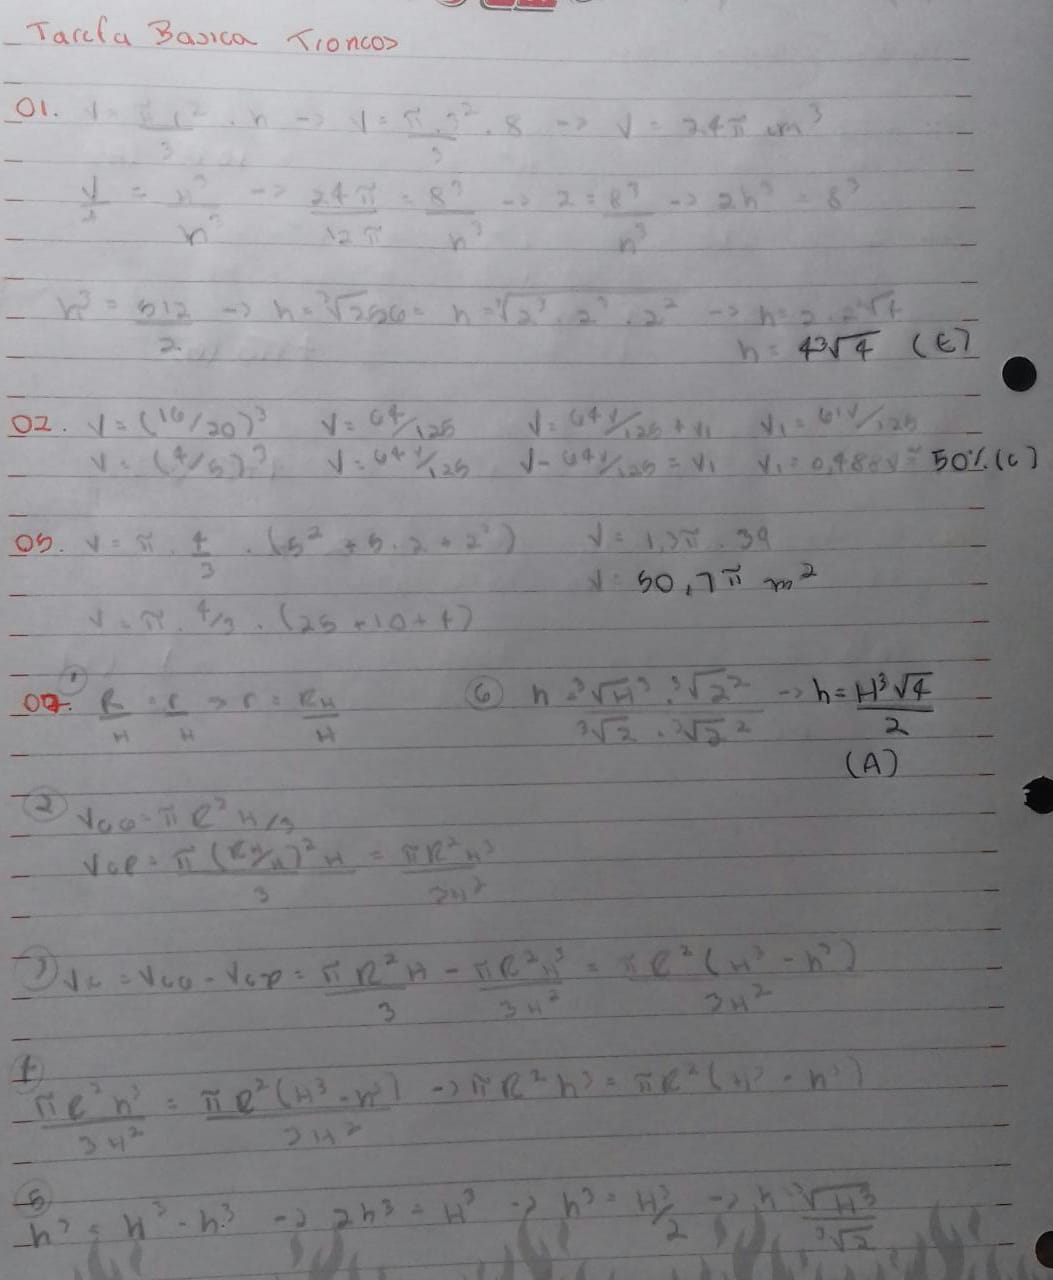 Tarefa Basica Troncos
01. V = πr²/3 . h -> V = π.3²/3 . 8 -> V = 24π cm³
V/v = H³/h³ -> 24π/12π = 8³/h³ -> 2 = 8³/h³ -> 2h³ = 8³
h³ = 512/2 -> h = ³√256 = h = ³√2³.2³.2² -> h = 2.2³√4
h = 4³√4 (E)
02. V = (16/20)³ V = 64/125 V = 64V/125 + V₁ V₁ = 61V/125
V = (4/5)³ V = 64V/125 V - 64V/125 = V₁ V₁ = 0,488V ≅ 50% (C)
05. V = π . 4/3 . (5² + 5.2 + 2²) V = 1,3π . 39
V = 50,7π m²
V = π . 4/3 . (25 + 10 + 4)
07. ① R/H = r/H -> r = RH/H ⑥ h = ³√H³ . ³√2²/³√2 . ³√2² -> h = H³√4/2
(A)
② VCG = πR²H/3
VCP = π(RH/H)²H/3 = πR²h³/3H²
③ = VCG - VCP = πR²H/3 - πR²h³/3H² = πR²(H³ - h³)/3H²
④
πR²h³/3H² = πR²(H³ - h³)/3H² -> πR²h³ = πR²(H³ - h³)
⑤
h³ = H³ - h³ -> 2h³ = H³ -> h³ = H³/2 -> h = ³√H³/³√2